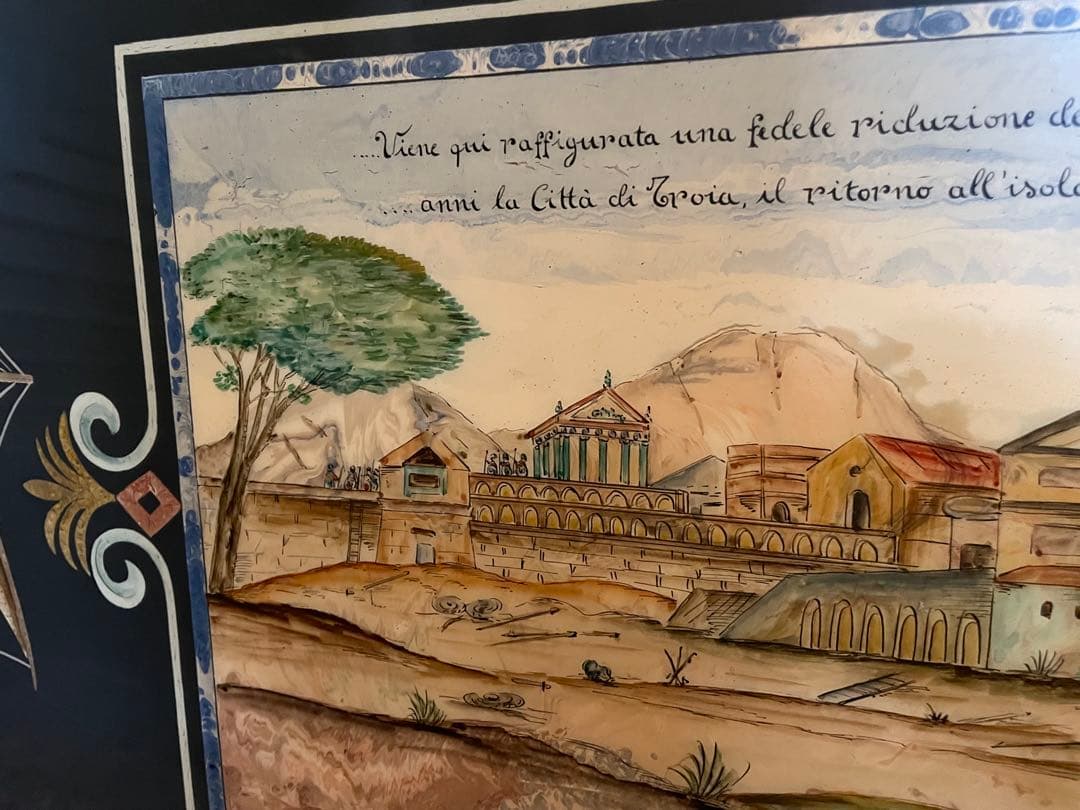 ....Viene qui raffigurata una fedele riduzione de
....anni la Città di Troia, il ritorno all'isola